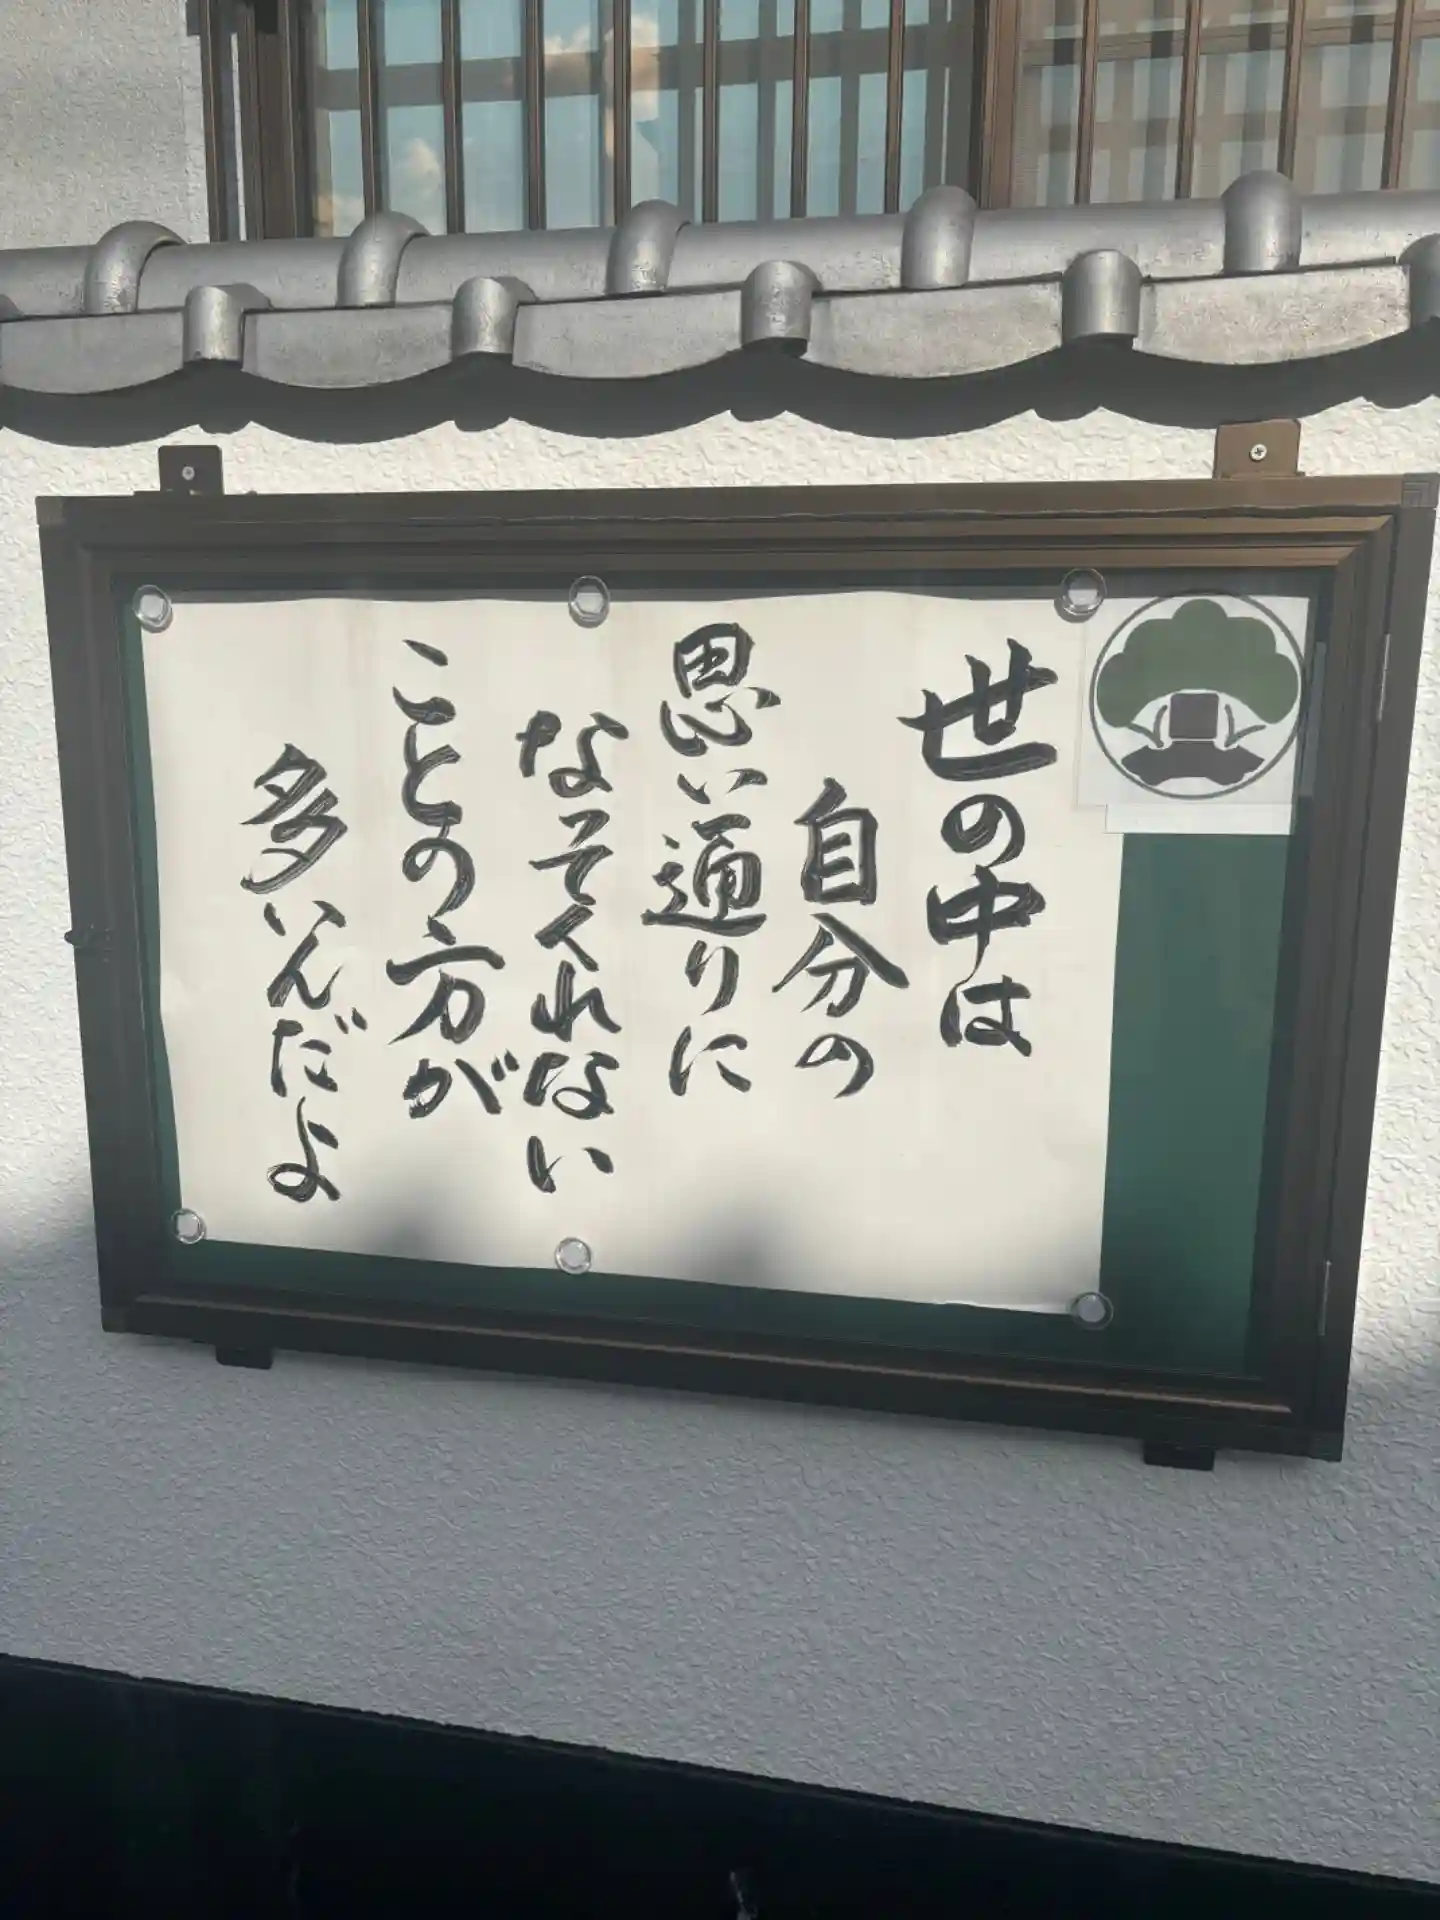 世の中は
自分の
思い通りに
なってくれない
ことの方が
多いんだよ